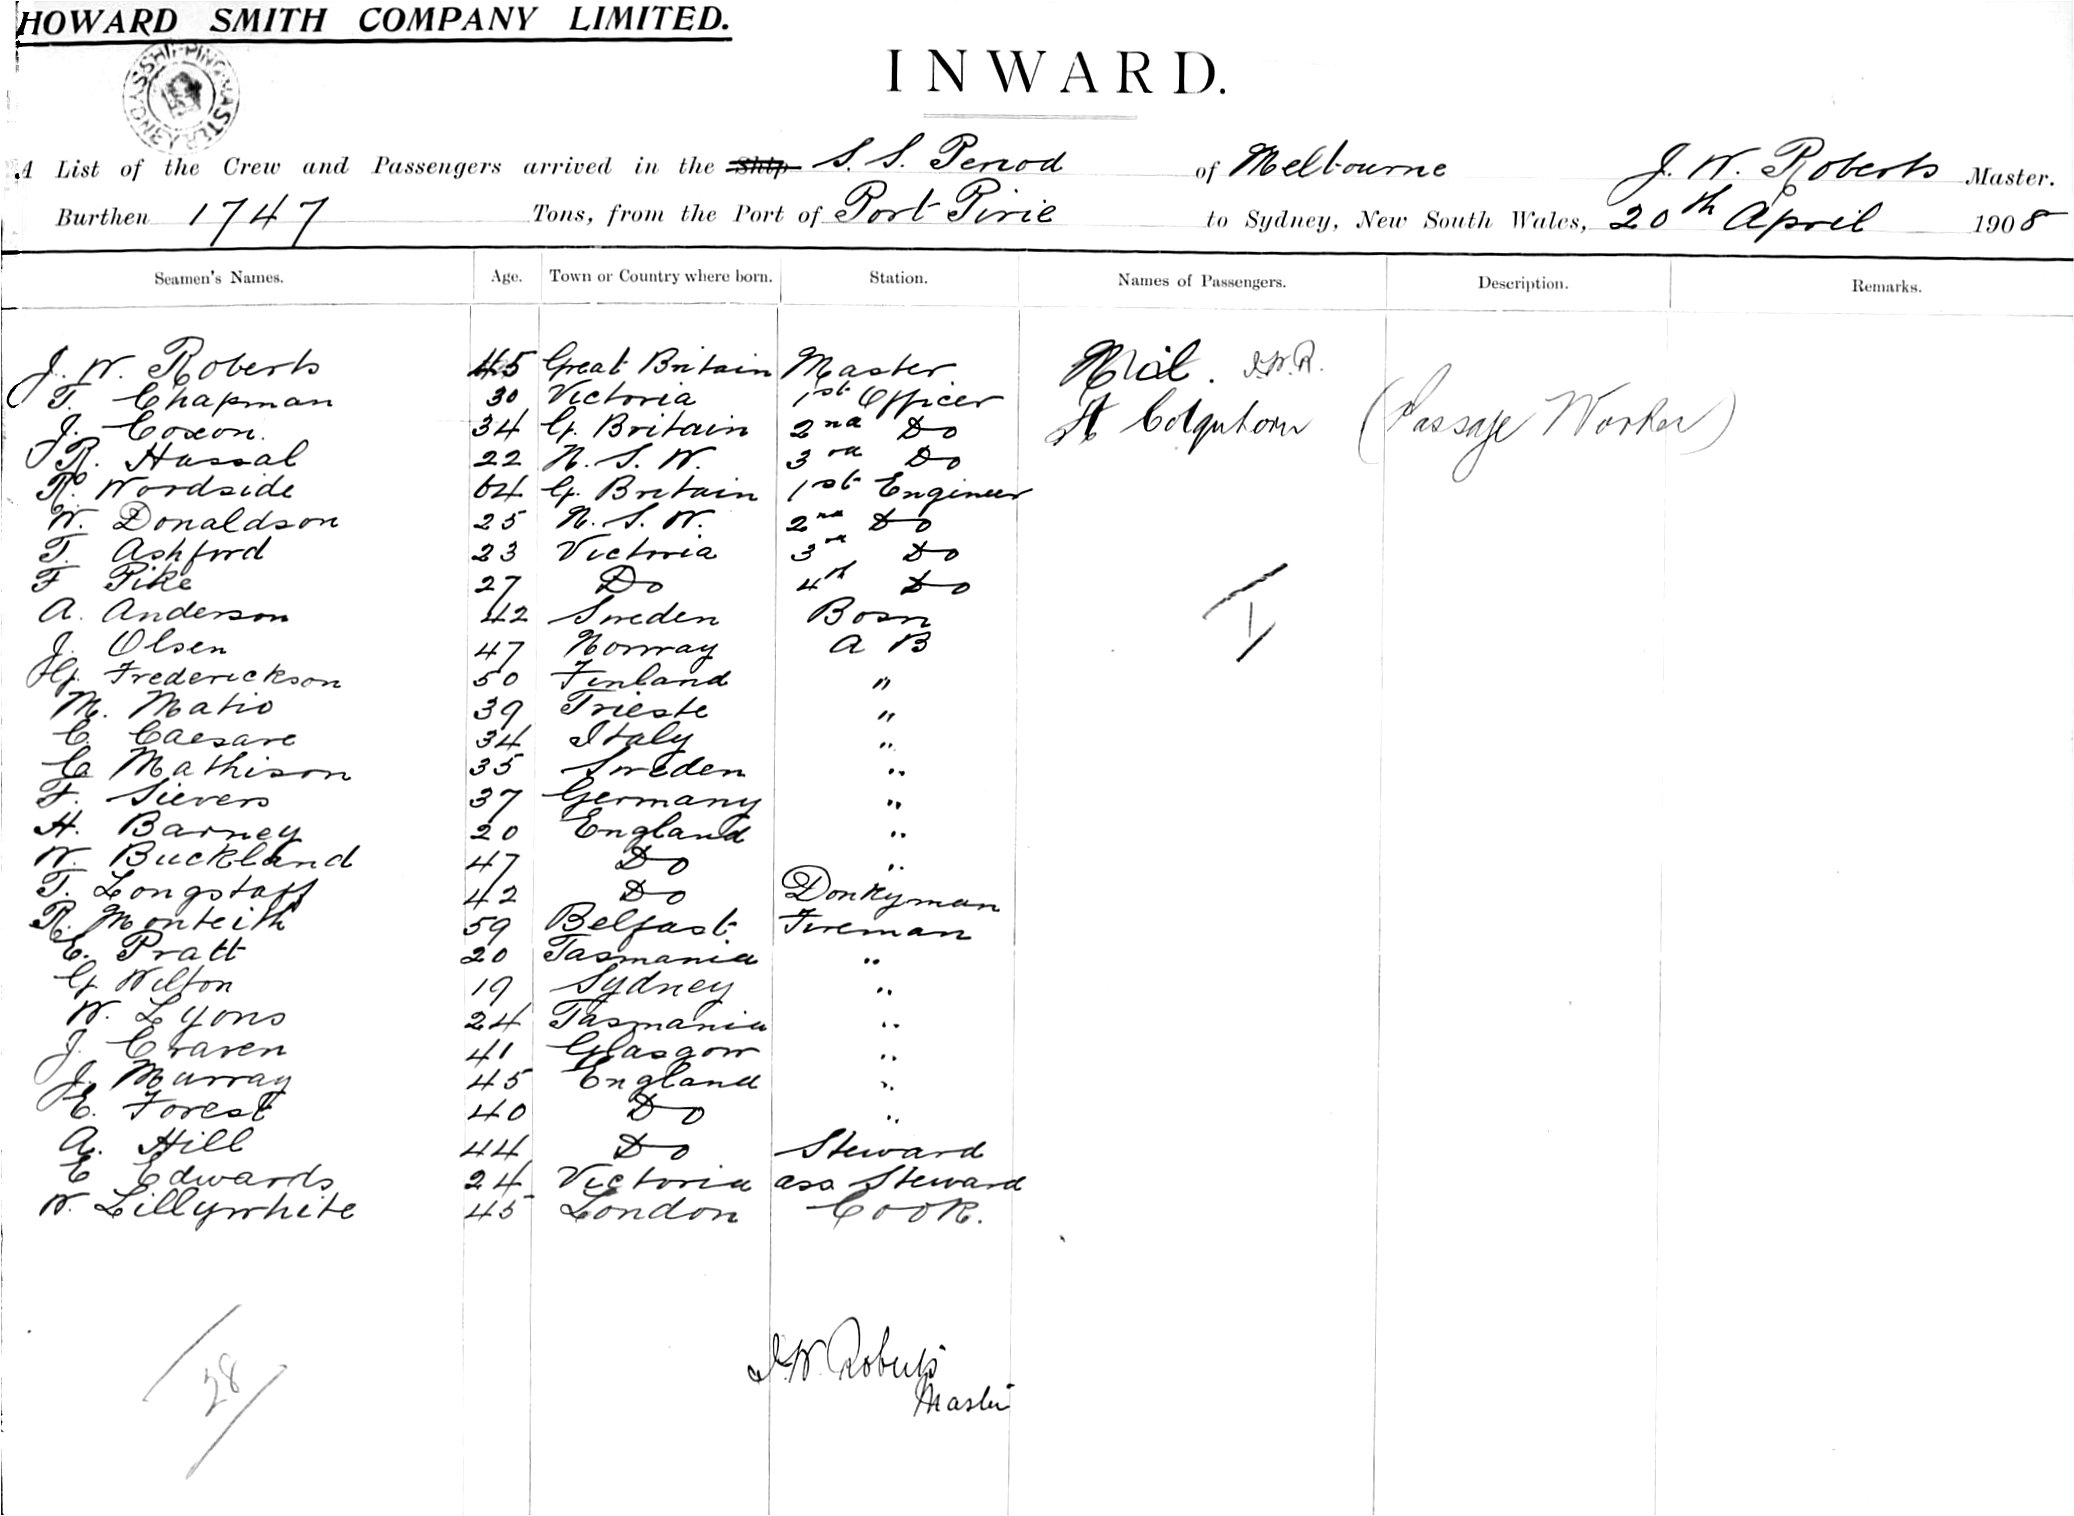 HOWARD SMITH COMPANY LIMITED.
SHIPPING MASTER SYDNEY
INWARD.
A List of the Crew and Passengers arrived in the Ship S. S. Period of Melbourne J. W. Roberts Master.
Burthen 1747 Tons, from the Port of Port Pirie to Sydney, New South Wales, 20th April 1908
Seamen's Names. Age. Town or Country where born. Station. Names of Passengers. Description. Remarks.
J. W. Roberts 45 Great Britain Master Nil. J.W.R.
T. Chapman 30 Victoria 1st Officer
J. Coxon. 34 G. Britain 2nd Do A Colquhorn (Passage Worker)
R. Hassal 22 N. S. W. 3rd Do
R. Woodside 64 G. Britain 1st Engineer
W. Donaldson 25 N. S. W. 2nd Do
T. Ashford 23 Victoria 3rd Do
F Pike 27 Do 4th Do
A. Anderson 42 Sweden Bosn
J. Olsen 47 Norway A B
G. Frederickson 50 Finland "
M. Matio 39 Trieste "
C. Caesare 34 Italy "
C Mathison 35 Sweden "
F. Sievers 37 Germany "
H. Barney 20 England "
W. Buckland 47 Do "
T. Longstaff 42 Do Donkyman
R. Monteith 59 Belfast Fireman
E. Pratt 20 Tasmania "
G Wilton 19 Sydney "
W. Lyons 24 Tasmania "
J. Craven 41 Glasgow "
J. Murray 45 England "
E. Forest 40 Do "
A. Hill 44 Do Steward
E Edwards 24 Victoria ass. Steward
W. Lillywhite 45 London Cook.
28
J. W. Roberts
Master